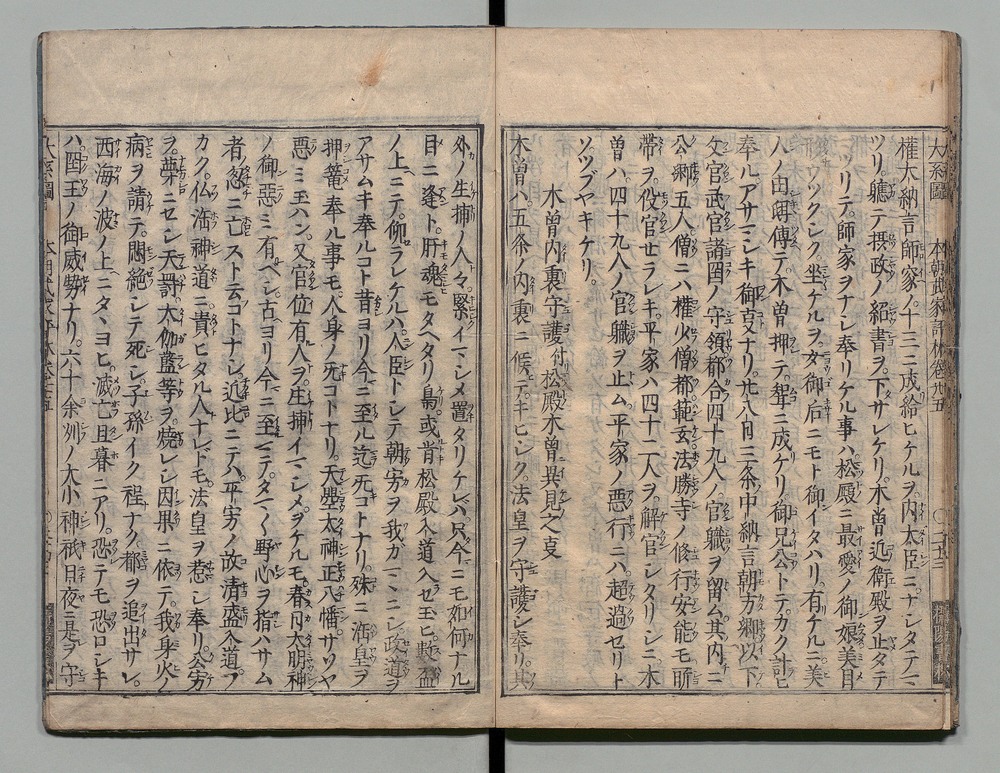 大系圖 本朝武家評林卷廿五
權大納言師家ノ十三ニ成給ヒケルヲ内大臣ニナシタテマ
ツリ。軈テ摂政ノ紹書ヲ。下サレケリ。木曽近衛殿ヲ止タテ
マツリテ。師家ヲナシ奉リケル事ハ松殿ニ最愛ノ御娘美目
ウツクシク。坐ケルヲ。女御后ニモト御イタハリ。有ケルニ美
人ノ由
傳テ。木曽押テ。聟ニ成ケリ御兄公トテ。カク計ヒ
奉ルアサマシキ御支ナリ。廿八日三条中納言朝方卿以下
文官武官諸国ノ守領都合四十九人ノ官職ヲ留ム其内ニ
公卿五人僧ニハ權大僧都
法勝寺ノ修行安能モ所
帯ヲ没官せラレキ。平家ハ四十二人ヲ。解官シタリシニ木
曽ハ。四十九人ノ官職ヲ止ム平家ノ悪行ニハ超過セリト
ツブヤキケリ。
木曽内裏守護付松殿木曽異見之支
木曽ハ五条ノ内裏ニ候テ。キビシク。法皇ヲ守護シ奉リ。其
外ノ生捕ノ人々。緊イマシメ置タリケレバ。只今ニモ如何ナル
目ニ逢ト。肝魂モタヘタリ
或肯松殿入道ヘせ玉ヒ。數盃
ノ上ニテ。仰ラレケルハ人臣トシテ朝家ヲ我ガマヽニシ政道ヲ
アサムキ奉ルコト昔ヨリ今ニ至ル迄死コトナリ。殊ニ法皇ヲ
押篭奉ル事モ。人身ノ死コトナリ。天照太神正八幡サゾヤ
悪ミ玉ハン。又官位有人ヲ。生捕イマシメヲケルモ。春日大明神
ノ御悪ミ有ベシ。古ヨリ今ニ至マテ。タマ〱野心ヲ指ハサム
者忽ニ亡スト云コトナシ近比ニテハ。平家ノ故清盛入道。フ
カク。仏法神道ニ貴ヒタル人ナレドモ。法皇ヲ惹シ奉リ。公家
ヲ。夢ニセシ天罰。大伽藍等ヲ。焼シ因果ニ依テ。我身火ノ
病ヲ請テ。悶絶シテ死シ。子孫イク程ナク都ヲ追出サレ。
西海ノ波ノ上ニタヾヨヒ。滅亡旦暮ニアリ。恐テモ恐ロシキ
ハ國王ノ御威勢ナリ。六十余洲ノ大小神祇日夜ニ是ヲ守
大系圖